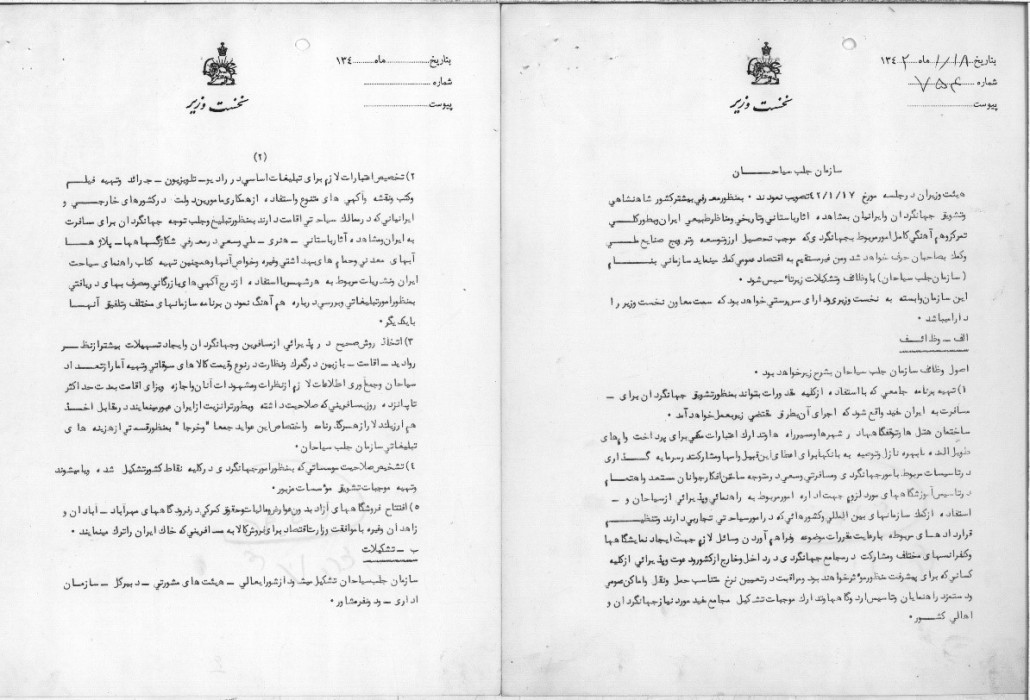 بتاریخ ۱/۱۸ ماه ۱۳۴۲
شماره ۷۵۴
پیوست
نخست وزیر
سازمان جلب سیاحان
هیئت وزیران در جلسه مورخ ۴۲/۱/۱۷ تصویب نمودند ۰ بمنظور معرفی بیشتر کشور شاهنشاهی
وتشویق جهانگردان وایرانیان بمشاهده آثار باستانی وتاریخی ومناظر طبیعی ایران وبطور کلی
تمرکز وهم آهنگی کامل امور مربوط بجهانگردی که موجب تحصیل ارز وتوسعه وترویج صنایع ملی
وکمک بصاحبان حرف خواهد شد ومن غیر مستقیم به اقتصاد عمومی کمک مینماید سازمانی بنام
(سازمان جلب سیاحان) با وظائف وتشکیلات زیر تاسیس شود ۰
این سازمان وابسته به نخست وزیری ودارای سرپرستی خواهد بود که سمت معاون نخست وزیر را
دارا میباشد ۰
الف ـ وظائف
اصول وظائف سازمان جلب سیاحان بشرح زیر خواهد بود ۰
۱) تهیه برنامه جامعی که با استفاده از کلیه مقدورات بتواند بمنظور تشویق جهانگردان برای ـ
مسافرت به ایران مفید واقع شود که اجرای آن بطرق مقتضی زیر بعمل خواهد آمد ۰
ساختمان هتل ها وتوقفگاهها در شهرها ومسیر راه ها وتدارک اعتبارات مکفی برای پرداخت وام های
طویل المده با بهره نازل وتوصیه به بانکها برای اعطای این قبیل وامها ومشارکت در سرمایه گذاری
در تاسیسات مربوط بامور جهانگردی ومسافرتی وسعی در متوجه ساختن افکار جوانان مستعد واهتمام
در تاسیس آموزشگاههای مورد لزوم جهت اداره امور مربوط به راهنمائی وپذیرائی از سیاحان و ـ
استفاده از کمک سازمانهای بین المللی وکشورهائی که در امور سیاحتی تجاربی دارند وتنظیم
قراردادهای مربوطه با رعایت مقررات موضوعه وفراهم آوردن وسائل لازم جهت ایجاد نمایشگاهها
وکنفرانسهای مختلف ومشارکت در مجامع جهانگردی در داخل وخارج از کشور ودعوت وپذیرائی از کلیه
کسانی که برای پیشرفت منظور موثر خواهند بود ومراقبت در تعیین نرخ متناسب حمل ونقل واماکن عمومی
ودستمزد راهنمایان وتاسیس اردوگاهها وتدارک موجبات تشکیل مجامع مفید مورد نیاز جهانگردان و
اهالی کشور ۰
بتاریخ ماه ۱۳۴
شماره
پیوست
نخست وزیر
(۲)
۲) تخصیص اعتبارات لازم برای تبلیغات اساسی در رادیو ـ تلویزیون ـ جرائد وتهیه فیلم
وکتب ونقشه وآگهی های متنوع واستفاده از همکاری مامورین دولت در کشورهای خارجی و
ایرانیانی که در ممالک سیاحتی اقامت دارند بمنظور تبلیغ وجلب توجه جهانگردان برای مسافرت
به ایران ومشاهده آثار باستانی ـ هنری ـ ملی وسعی در معرفی شکارگاهها ـ پلاژها
آبهای معدنی وحمام های بهداشتی وغیره وخواص آنها وهمچنین تهیه کتاب راهنمای سیاحت
ایران ونشریات مربوط به هر شهر وبا استفاده از درج آگهی های بازرگانی ومصرف بهای دریافتی
بمنظور امور تبلیغاتی وبررسی درباره هم آهنگ نمودن برنامه سازمانهای مختلف وتلفیق آنها
با یکدیگر ۰
۳) انتخاب روش صحیح در پذیرائی از مسافرین وجهانگردان وایجاد تسهیلات بیشتر از نظر
روادید ـ اقامت ـ بازبین در گمرک ونظارت در نوع وقیمت کالاهای سوقاتی وتهیه آمار از تعداد
سیاحان وجمع آوری اطلاعات لازم از نظرات ومشهودات آنان واجازه ویزای اقامت بمدت حداکثر
تا پانزده روز بمسافرینی که صلاحیت داشته وبطور ترانزیت از ایران عبور مینمایند در مقابل اخذ
هم ارز یک دلار از هر گذرنامه واختصاص این عواید جمعا "وخرجا" بمنظور قسمتی از هزینه های
تبلیغاتی سازمان جلب سیاحان ۰
۴) تشخیص صلاحیت موسساتی که بمنظور امور جهانگردی در کلیه نقاط کشور تشکیل شده ویا میشوند
وتهیه موجبات تشویق مؤسسات مزبور ۰
۵) افتتاح فروشگاههای آزاد بدون عوارض ومالیات وحقوق گمرکی در فرودگاههای مهرآباد ـ آبادان و
زاهدان وغیره با موافقت وزارت اقتصاد برای فروش کالا به مسافرینی که خاک ایران را ترک مینمایند ۰
ب ـ تشکیلات
سازمان جلب سیاحان تشکیل میشود از شورایعالی ـ هیئت های مشورتی ـ دبیرکل ـ سازمان
اداری ـ ودو نفر مشاور ۰